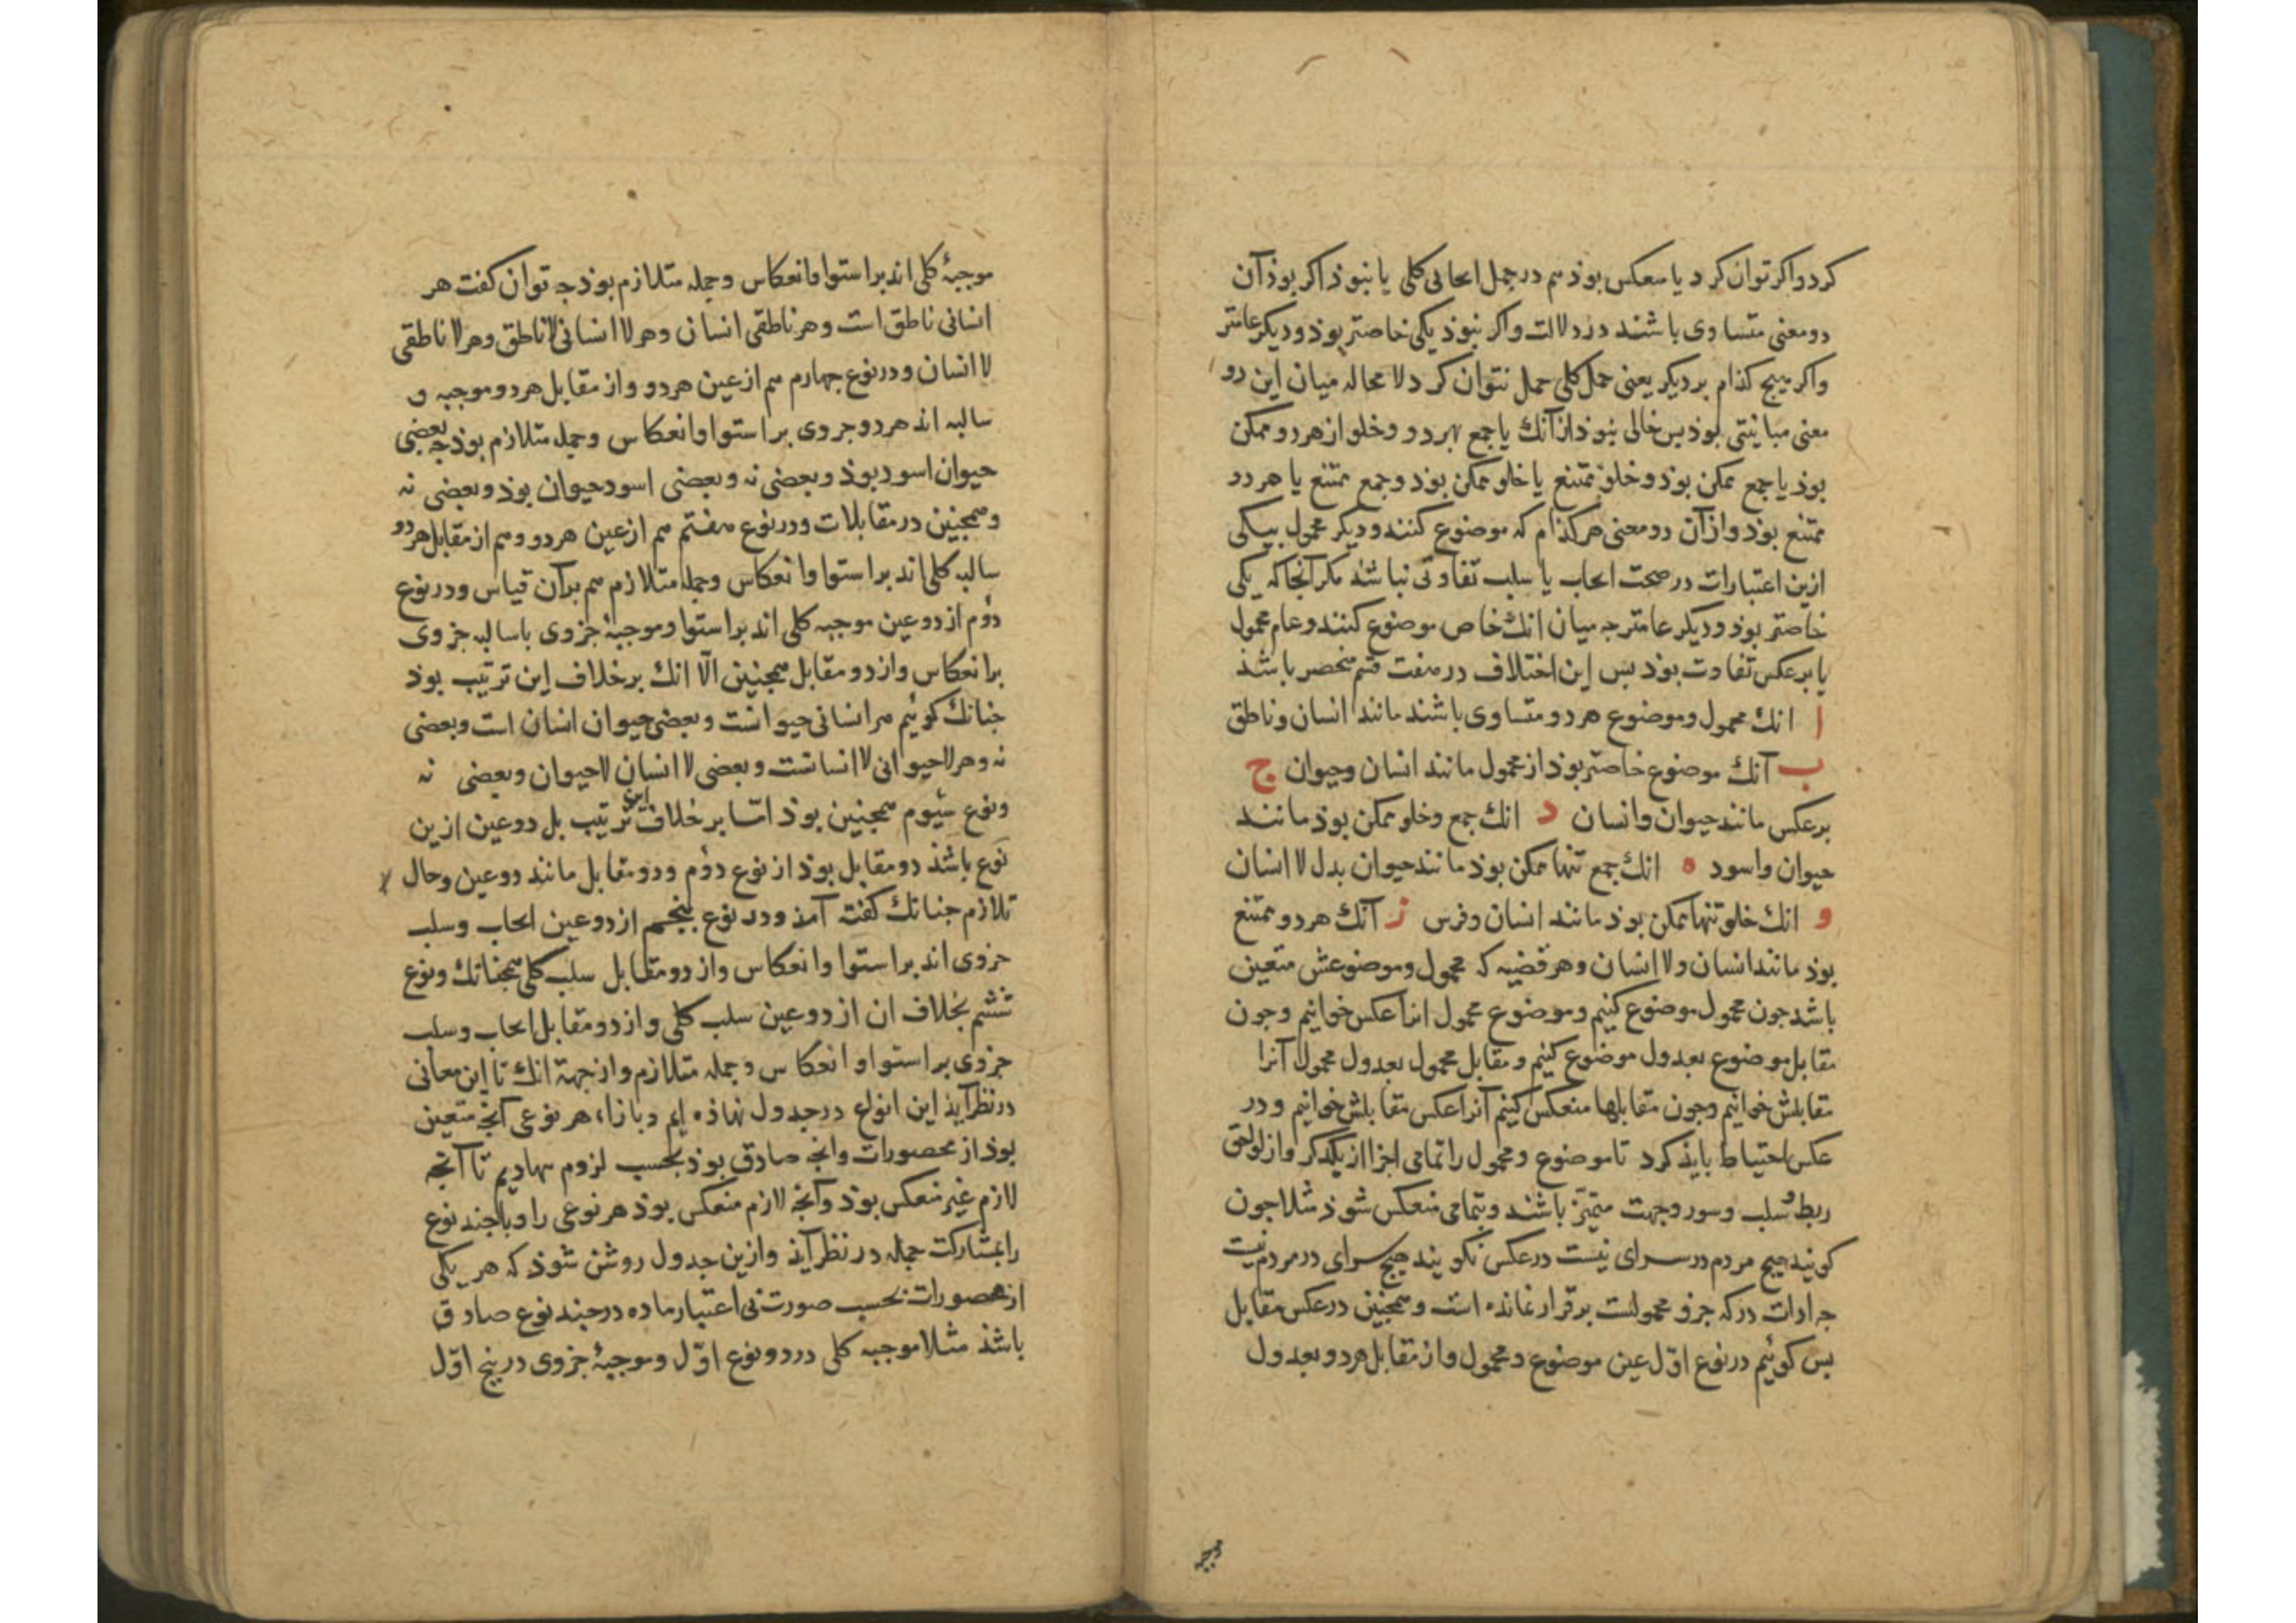 کرد و اکر توان کرد یا منعکس بوذ هم در حمل ایجابی کلی یا نبوذ اکر بوذ آن
دو معنی متساوی باشند در دلالت و اکر نبوذ یکی خاصتر بوذ و دیکر عامتر
و اکر هیچ کذام بر دیکر یعنی حمل کلی حمل نتوان کرد لا محاله میان این دو
معنی مباینتی بوذ بس خالی نبوذ از آنك یا جمع هر دو و خلو از هر دو ممکن
بوذ یا جمع ممکن بوذ و خلو ممتنع یا خلو ممکن بوذ و جمع ممتنع یا هر دو
ممتنع بوذ و از آن دو معنی هر کذام که موضوع کنند و دیکر محمول بیکی
ازین اعتبارات در صحت ایجاب یا سلب تفاوتی نباشذ مکر آنجا که یکی
خاصتر بوذ و دیکر عامتر جه میان انك خاص موضوع کنند و عام محمول
یا برعکس تفاوت بوذ بس این اختلاف در هفت قسم منحصر باشذ
ا انك محمول و موضوع هر دو متساوی باشند مانند انسان و ناطق
ب آنك موضوع خاصتر بوذ از محمول مانند انسان و حیوان ج
برعکس مانند حیوان و انسان د انك جمع و خلو ممکن بوذ مانند
حیوان و اسود ه انك جمع تنها ممکن بوذ مانند حیوان بدل لا انسان
و انك خلو تنها ممکن بوذ مانند انسان و فرس ز آنك هر دو ممتنع
بوذ مانند انسان و لا انسان و هر قضیه که محمول و موضوعش متعین
باشد جون محمول موضوع کنیم و موضوع محمول انرا عکس خوانیم و جون
مقابل موضوع بعدول موضوع کنیم و مقابل محمول بعدول محمول آنرا
مقابلش خوانیم و جون مقابلها منعکس کنیم آنرا عکس مقابلش خوانیم و در
عکس احتیاط بایذ کرد تا موضوع و محمول را تمامی اجزا از یکدکر و از لواحق
ربط و سلب و سور و جهت متمیز باشند و بتمامی منعکس شوذ مثلا جون
کویند هیچ مردم در سرای نیست در عکس نکویند هیچ سرای در مردم نیست
جه ادات در که جزو محمولست برقرار نمانده است و همجنین در عکس مقابل
بس کوئیم در نوع اوّل عین موضوع و محمول و از مقابل هر دو بعدول
موجبه
موجبهٔ کلی اند بر استوا و انعکاس و جمله متلازم بوذ جه توان کفت هر
انسانی ناطق است و هر ناطقی انسان و هر لا انسانی لا ناطق و هر لا ناطقی
لا انسان و در نوع جهارم هم از عین هر دو و از مقابل هر دو موجبه و
سالبه اند هر دو جزوی بر استوا و انعکاس و جمله متلازم بوذ جه بعضی
حیوان اسود بوذ و بعضی نه و بعضی اسود حیوان بوذ و بعضی نه
و همجنین در مقابلات و در نوع هفتم هم از عین هر دو و هم از مقابل هر دو
سالبه کلی اند بر استوا و انعکاس و جمله متلازم هم بر آن قیاس و در نوع
دوم از دو عین موجبه کلی اند بر استوا و موجبهٔ جزوی با سالبه جزوی
بر انعکاس و از دو مقابل همجنین الّا انك بر خلاف این ترتیب بوذ
جنانك کوئیم هر انسانی حیوانست و بعضی حیوان انسان است و بعضی
نه و هر لا حیوانی لا انسانست و بعضی لا انسان لا حیوان و بعضی نه
و نوع سیوم همجنین بوذ امّا بر خلاف این ترتیب بل دو عین ازین
نوع باشذ دو مقابل بوذ از نوع دوم و دو مقابل مانند دو عین و حال
تلازم جنانك کفته آمذ و در نوع پنجم از دو عین ایجاب و سلب
جزوی اند بر استوا و انعکاس و از دو مقابل سلب کلی همجنانك و نوع
ششم بخلاف ان از دو عین سلب کلی و از دو مقابل ایجاب و سلب
جزوی بر استوا و انعکاس و جمله متلازم و از جهة انك تا این معانی
در نظر آیذ این انواع در جدول نهاذه ایم و بازاء هر نوعی آنجه متعین
بوذ از محصورات و انجه صادق بوذ بحسب لزوم نهادیم تا آنجه
لازم غیر منعکس بوذ و آنجه لازم منعکس بوذ هر نوعی را و یا جند نوع
را بمشارکت جمله در نظر آیذ و ازین جدول روشن شوذ که هر یکی
از محصورات بحسب صورت بی اعتبار ماده در جند نوع صادق
باشذ مثلا موجبه کلی در دو نوع اوّل و موجبهٔ جزوی در پنج اوّل